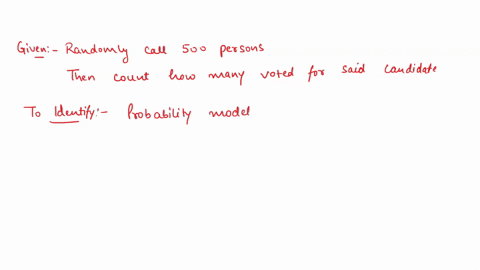 Given:- Randomly call 500 persons
Then count how many voted for said candidate
To Identify:- Probability model